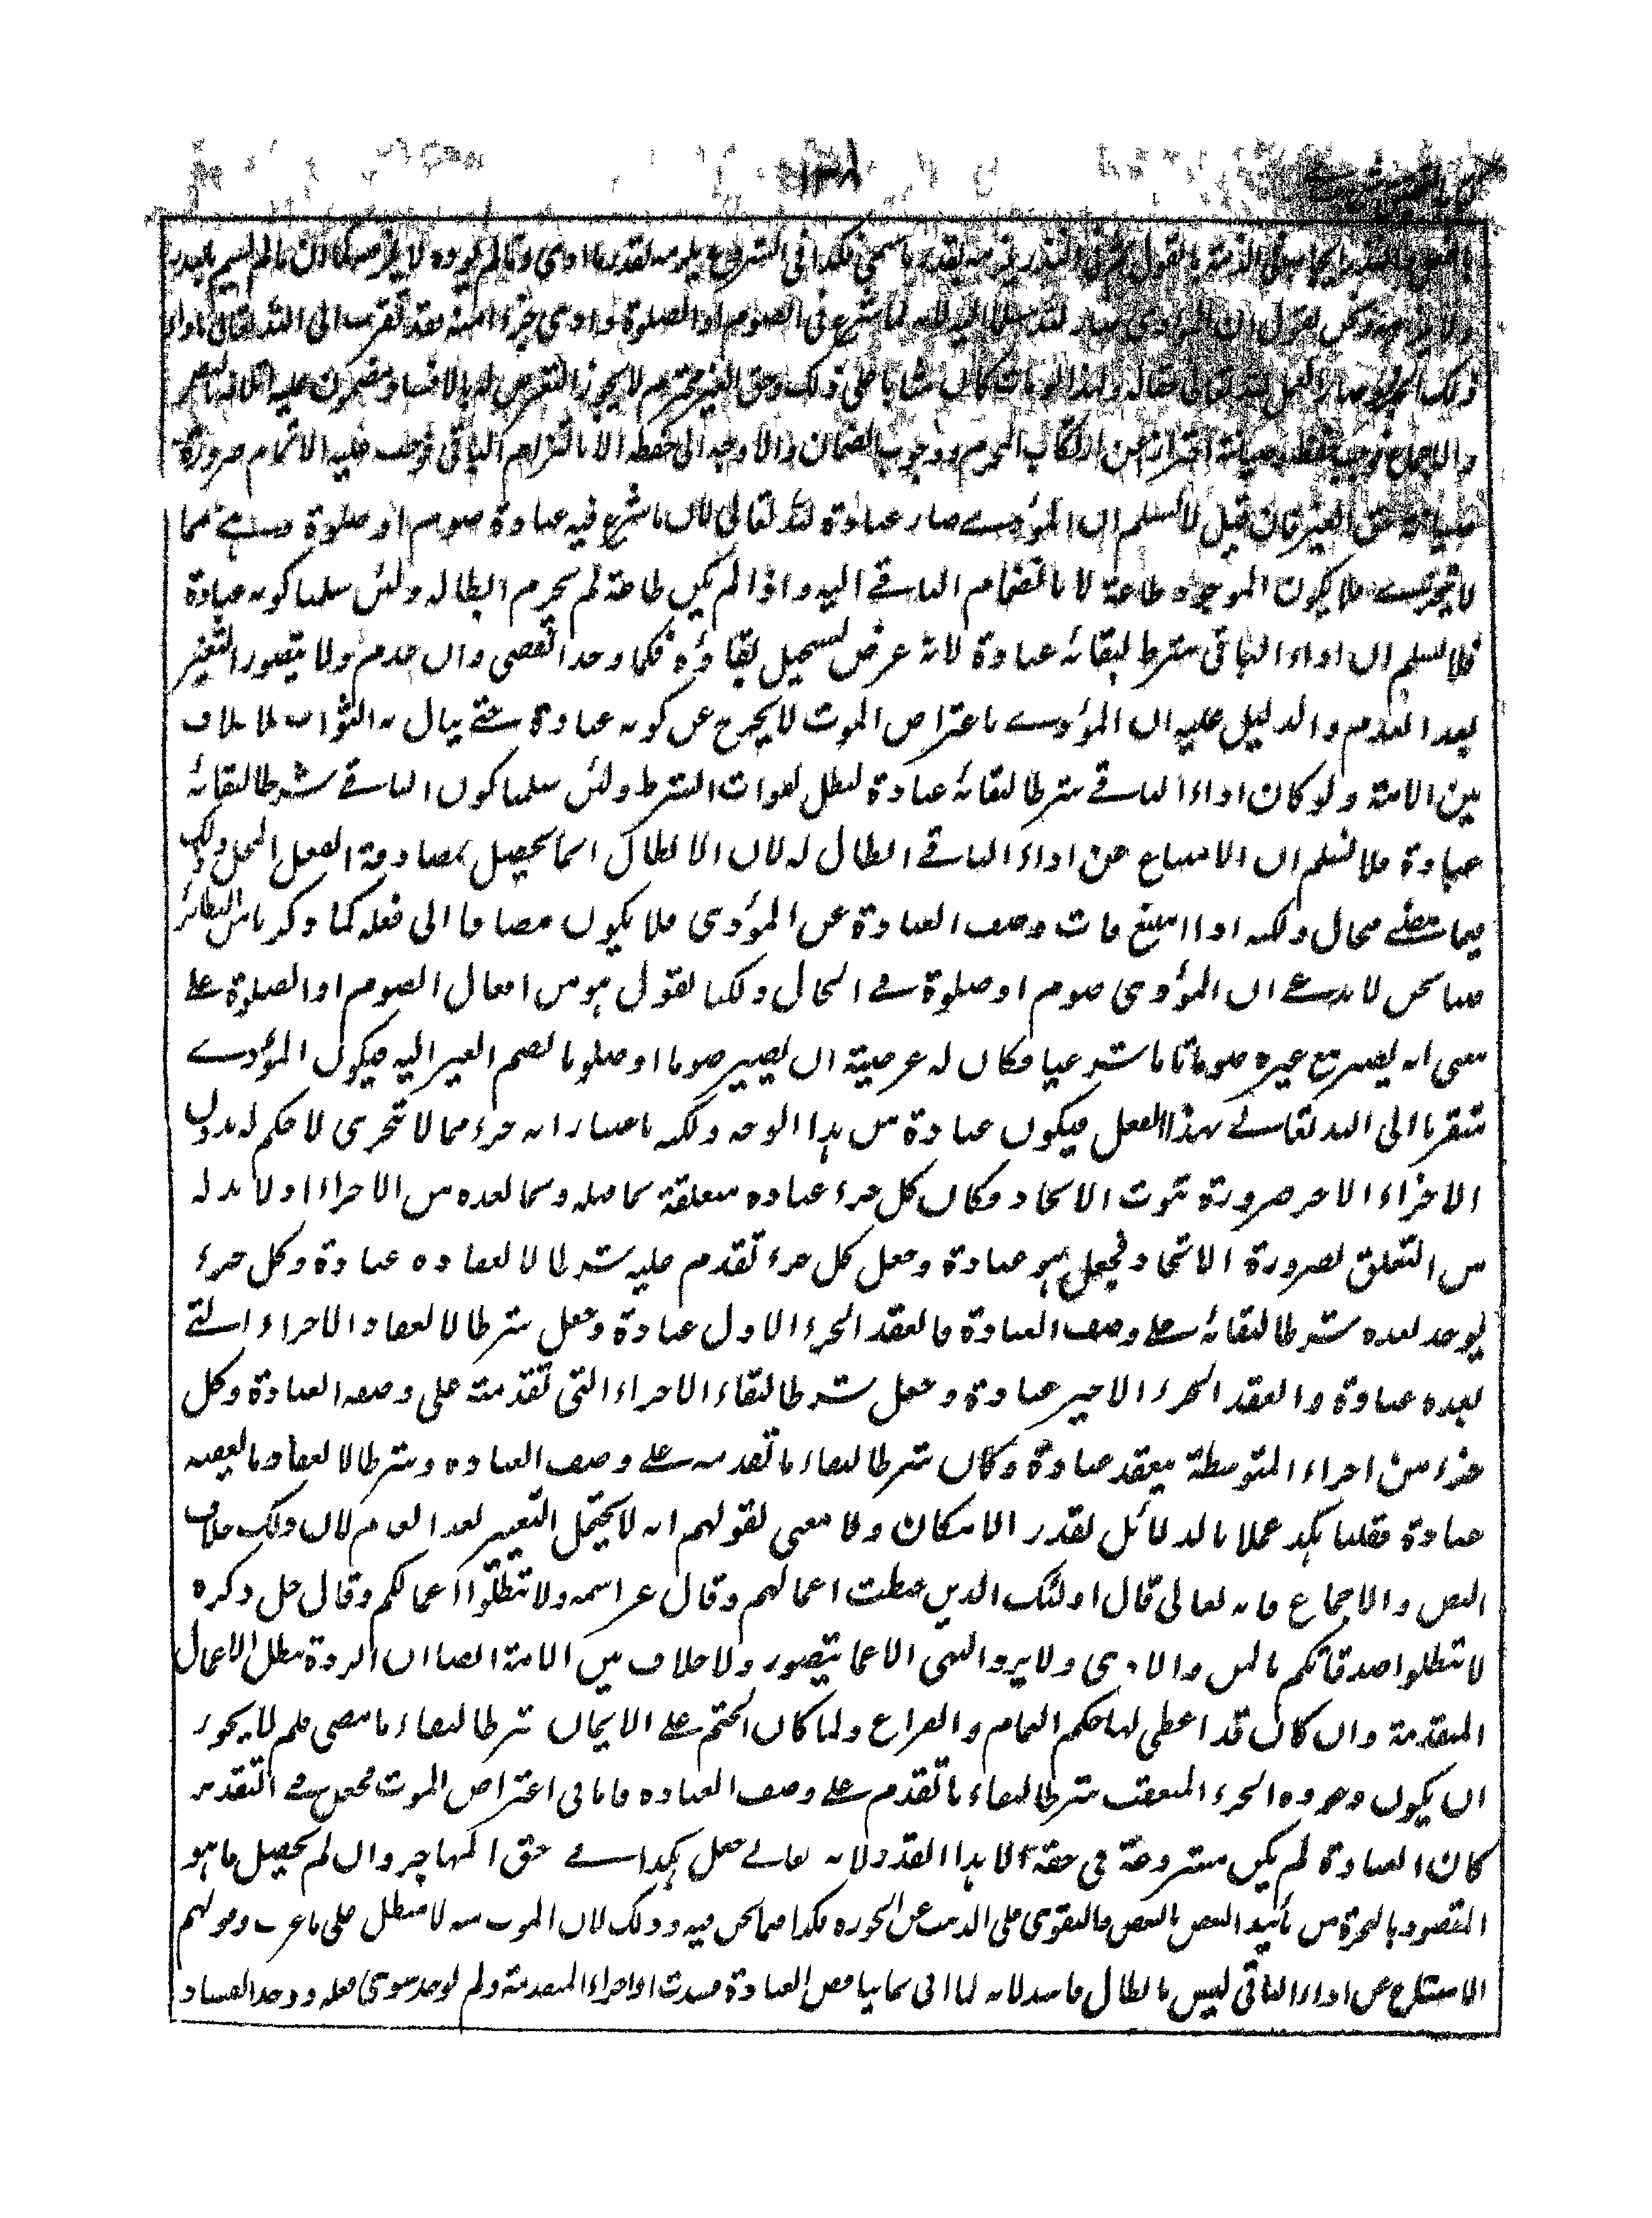 ١٣٨
بالقول ثم فى النذر يلزمه بقدر ما سمى فكذا فى الشروع يلزمه بقدر ما ادى وما لم يوده لا يلزمه
ونحن نقول ان المؤدى صار لله مسلما اليه لانه لما شرع فى الصوم او الصلوة وادى جزءا منه فقد تقرب الى الله تعالى باداء
ذلك الجزء وصار العمل لله تعالى حقا له ولهذا لو مات كان مثابا على ذلك وحق الغير محترم لا يجوز التعرض له بالافساد
احترازا عن ارتكاب المحرم ووجوب الضمان ولا وجه الى حفظه الا بالتزام الباقى فوجب عليه الاتمام ضرورة
صيانة حق الغير فان قيل لا نسلم ان المؤدى صار عبادة لله تعالى لان ما شرع فيه عبادة صوم او صلوة وهى مما
لا يتجزى فلا يكون الموجود طاعة الا بانضمام الباقى اليه واذا لم يكن طاعة لم يحرم ابطاله ولئن سلمنا كونه عبادة
فلا نسلم ان اداء الباقى شرط لبقائه عبادة لانه عرض يستحيل بقاؤه فكما وجد انقضى وان عدم ولا يتصور التغير
بعد العدم والدليل عليه ان المؤدى باعتراض الموت لا يخرج عن كونه عبادة حتى ينال به الثواب بلا خلاف
بين الامة ولو كان اداء الباقى شرطا لبقائه عبادة لبطل لفوات الشرط ولئن سلمنا كون الباقى شرطا لبقائه
عبادة فلا نسلم ان الامتناع عن اداء الباقى ابطال له لان الابطال انما يحصل بمصادفة الفعل المحل وذلك
فيما مضى محال ولكنه اذا امتنع فات وصف العبادة عن المؤدى فلا يكون مضافا الى فعله كما ذكرنا من النظائر
قلنا نحن لا ندعى ان المؤدى صوم او صلوة فى الحال ولكنا نقول هو من افعال الصوم او الصلوة على
معنى انه يصير مع غيره صوما تاما شرعيا فكان له عرضية ان يصير صوما او صلوة بالضم الغير اليه فيكون المؤدى
متقربا الى الله تعالى بهذا الفعل فيكون عبادة من هذا الوجه ولكنه باعتبار انه جزء مما لا تتجزى لا حكم له بدون
الاجزاء الاخر ضرورة ثبوت الاتحاد فكان كل جزء عباده متعلقة بما قبله وبما بعده من الاجزاء اذ لا بد له
من التعلق لضرورة الاتحاد فجعل هو عبادة وجعل كل جزء تقدم عليه شرطا لانعقاده عبادة وكل جزء
يوجد بعده شرطا لبقائه على وصف العبادة فانعقد الجزء الاول عبادة وجعل شرطا لانعقاد الاجزاء التى
بعده عبادة وانعقد الجزء الاخير عبادة وجعل شرطا لبقاء الاجزاء التى تقدمته على وصف العبادة وكل
جزء من اجزاء المتوسطة ينعقد عبادة وكان شرطا لبقاء ما تقدمه على وصف العباده وشرطا لانعقاد ما يعقبه
عبادة فقلنا هكذا عملا بالدلائل بقدر الامكان ولا معنى لقولهم انه لا يحتمل التغيير بعد العدم لان ذلك خلاف
النص والاجماع فانه تعالى قال اولئك الذين حبطت اعمالهم وقال عز اسمه ولا تبطلوا اعمالكم وقال جل ذكره
لا تبطلوا صدقاتكم بالمن والاذى ولا يرد النهى الا عما يتصور ولا خلاف بين الامة ايضا ان الردة تبطل الاعمال
المتقدمة وان كان قد اعطى لها حكم التمام والفراغ ولما كان الختم على الايمان شرطا لبقاء ما مضى فلم لا يجوز
ان يكون وجود الجزء المتعقب شرطا لبقاء ما تقدم على وصف العباده فاما فى اعتراض الموت فجعل فى التقدير
كان العبادة لم يكن مشروعة فى حقه الا هذا القدر لانه تعالى جعل هكذا فى حق المهاجر وان لم يحصل ما هو
المقصود بالهجرة من تاييد البعض بالبعض فكذا فيما نحن فيه وذلك لان الموت منه لا مبطل على ما عرف وقولهم
الامتناع عن اداء الباقى ليس بابطال فاسد لانه لما اتى بما يناقض العبادة فسدت الاجزاء المتقدمة ولم يوجد سوى فعله ووجد الفساد